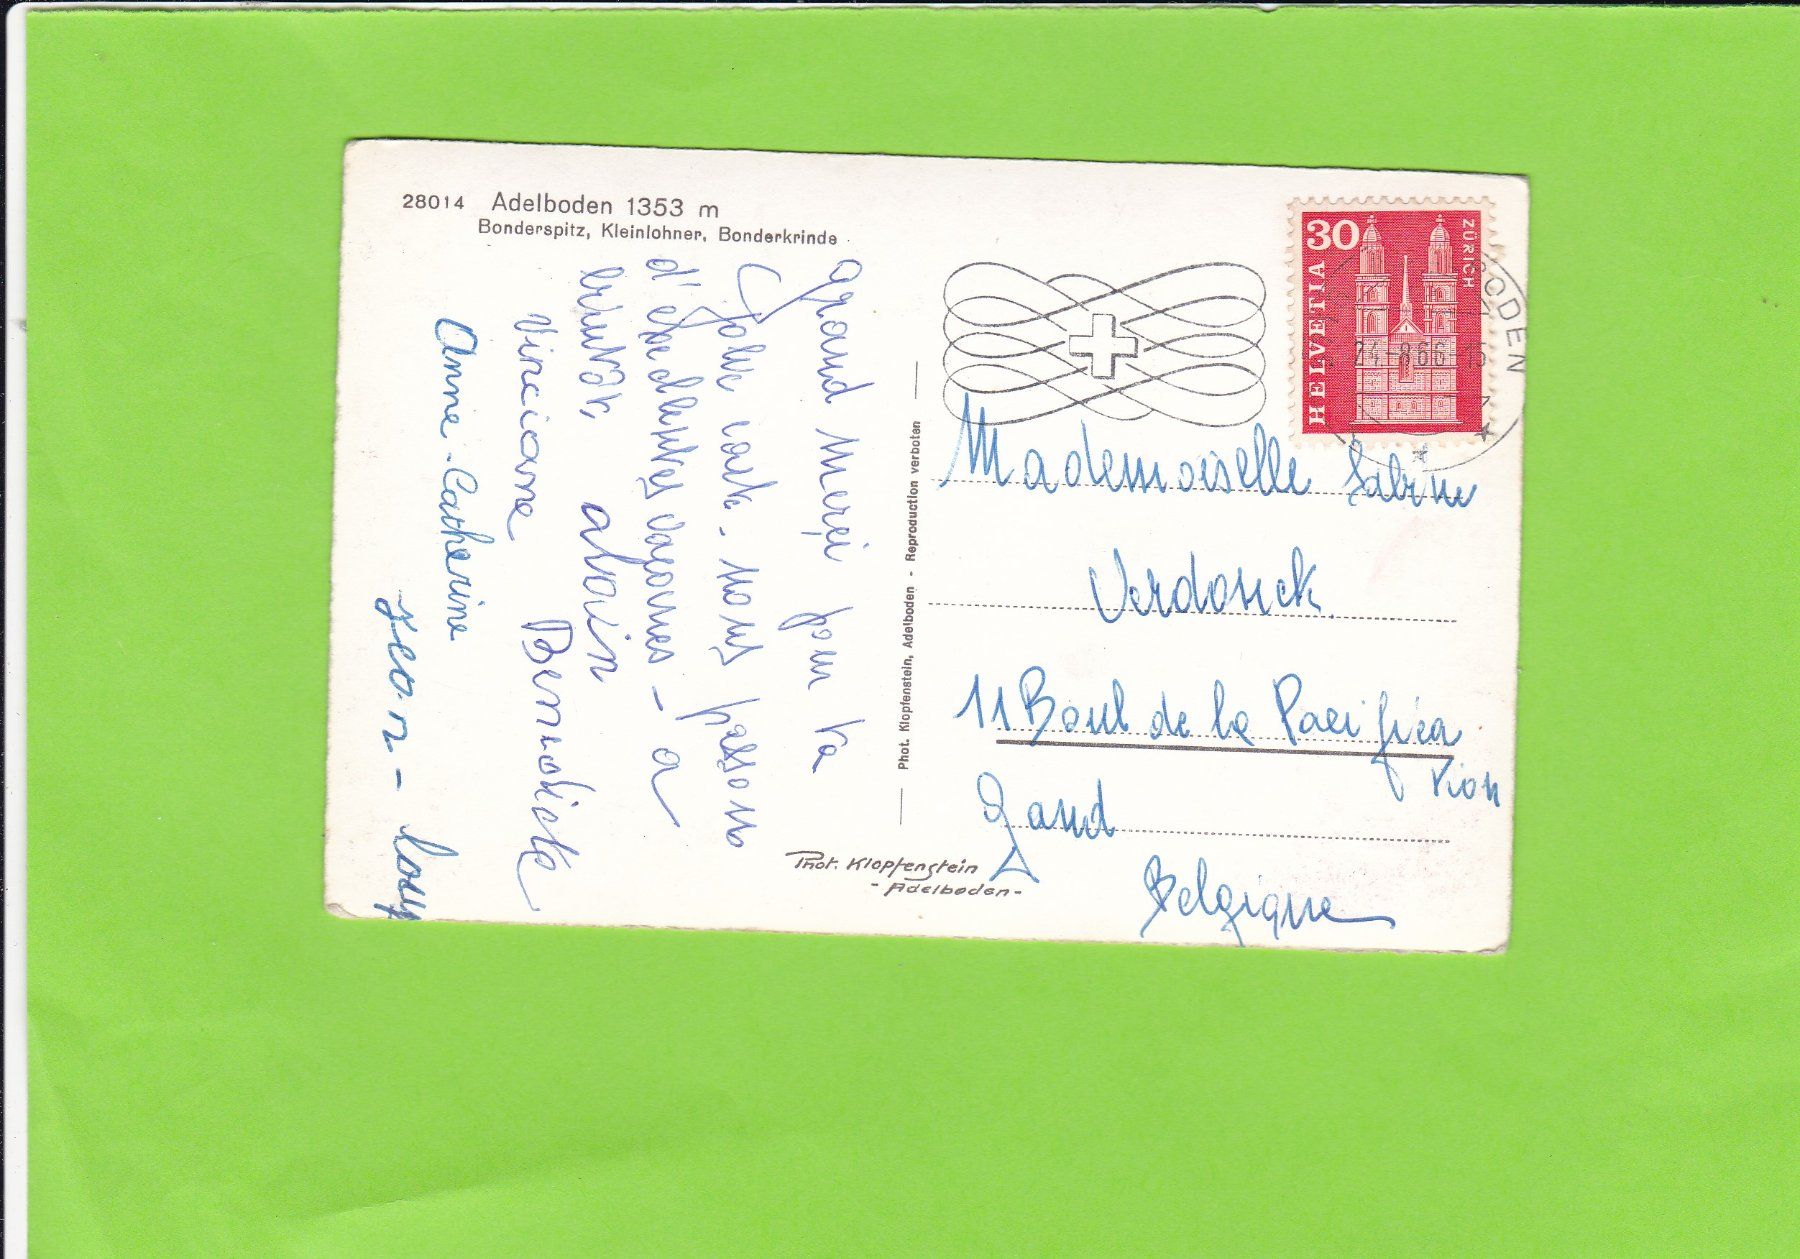 28014 Adelboden 1353 m
Bonderspitz, Kleinlohner, Bonderkrinde
grand merci pour ta
jolie carte. nous passons
d'excellentes vacances - a
bientôt, alain
vinciane Bénédicte
Anne-Catherine
Jean-louis
Phot. Klopfenstein, Adelboden - Reproduction verboten
Phot. Klopfenstein
- Adelboden -
30
HELVETIA
ZÜRICH
BODEN
24-8 66-15
Mademoiselle Sabine
11 Boul de la Pacifica
tion
Gand
Belgique